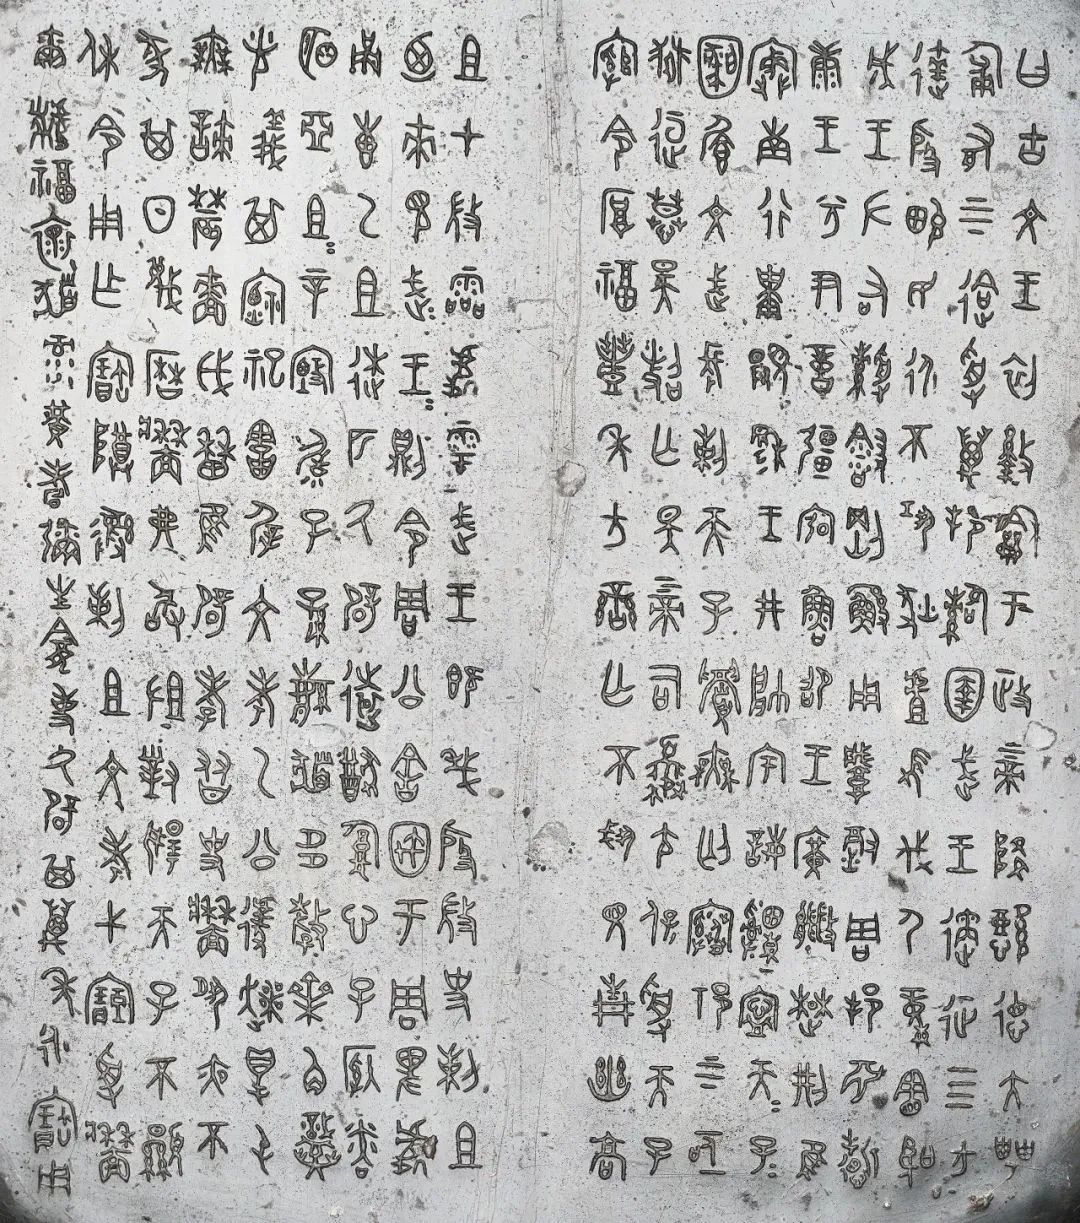 曰古文王初盭龢于政上帝降懿德大甹
匍有上下迨受萬邦䊮圉武王遹征四方
達殷畯民永不巩狄虘𢼸伐尸童憲聖
成王左右綬會剛鯀用肇徹周邦淵哲
康王兮尹億疆宖魯卲王廣㪤楚荊隹
寏南行祗顯穆王井帥宇誨申寧天子
圝饡文武長剌天子眉無匄寋祁上下亟
獄𧻚慕昊照亡斁上帝司夒尤保受天子
綰令厚福豐年方蠻亡不𢦚見青幽高
且才微霝處雩武王既𢦏殷微史剌且
廼來見武王則令周公舍𢎭于周卑處
甬叀乙且逑匹厥辟遠猷腹心子納粦
明亞且辛𡫳毓子孫繁祓多釐齊角熾
光義其禋祀𫳅遲文考乙公遽爽得屯
無諫農穡戉曆隹辟孝友史墻夙夜不
墜其日蔑曆墻弗敢沮對揚天子不顯
休令用乍寶尊彝剌且文考弋𡨦受墻
爾䵼福懷𩛥彔黃耇彌生龕事厥辟其萬年永寶用